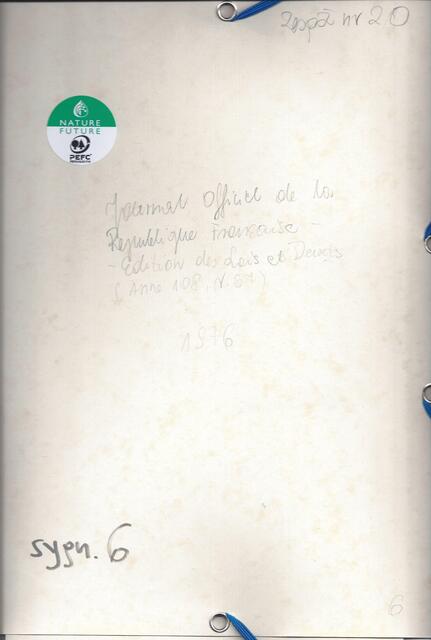 Zespół nr 20
NATURE
FUTURE
PEFC
Journal Officiel de la
Republique Francaise -
- Edition des Lois et Decrets
( Anne 108, N. 67)
1976
sygn. 6
6